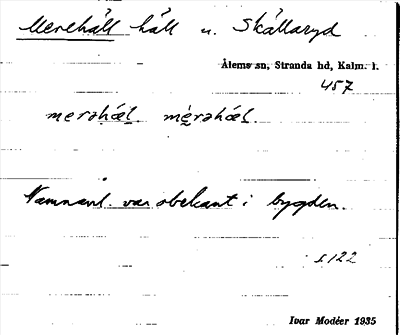 Merehäll häll u. Skällaryd
Ålems sn, Stranda hd, Kalm. l.
457
merəhæ̂l. mèrəhæ̂l.
Namnanl. var obekant i bygden.
s. 122
Ivar Modéer 1935